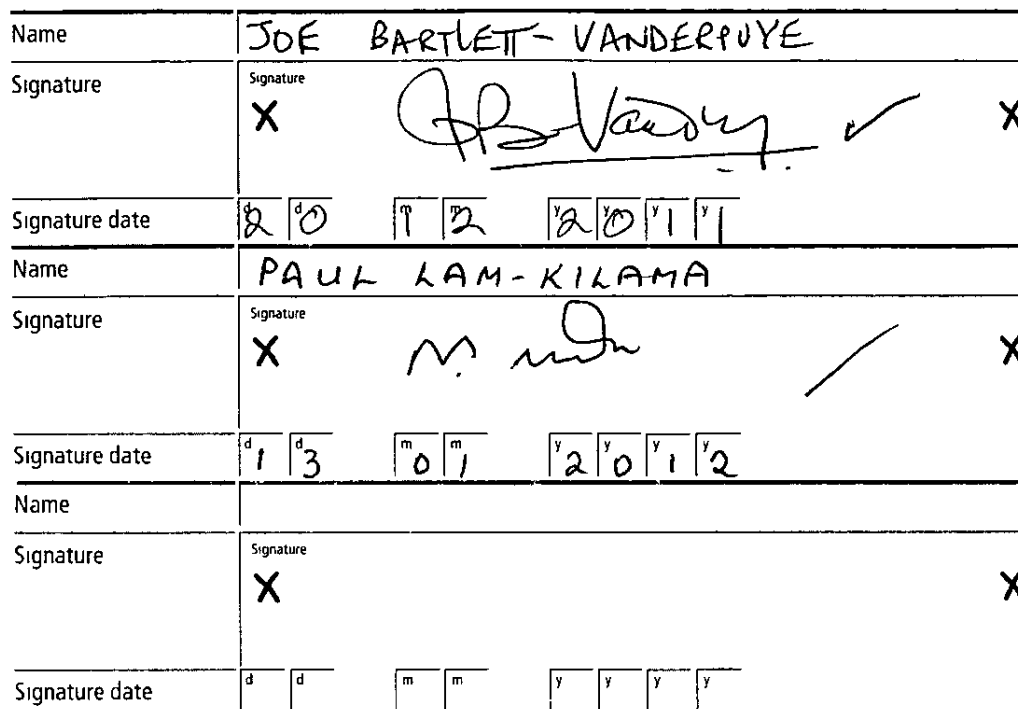 Name JOE BARTLETT-VANDERPUYE
Signature Signature
X X
Signature date d2 d0 m1 m2 y2 y0 y1 y1
Name PAUL LAM-KILAMA
Signature Signature
X X
Signature date d1 d3 m0 m1 y2 y0 y1 y2
Name
Signature Signature
X X
Signature date d d m m y y y y